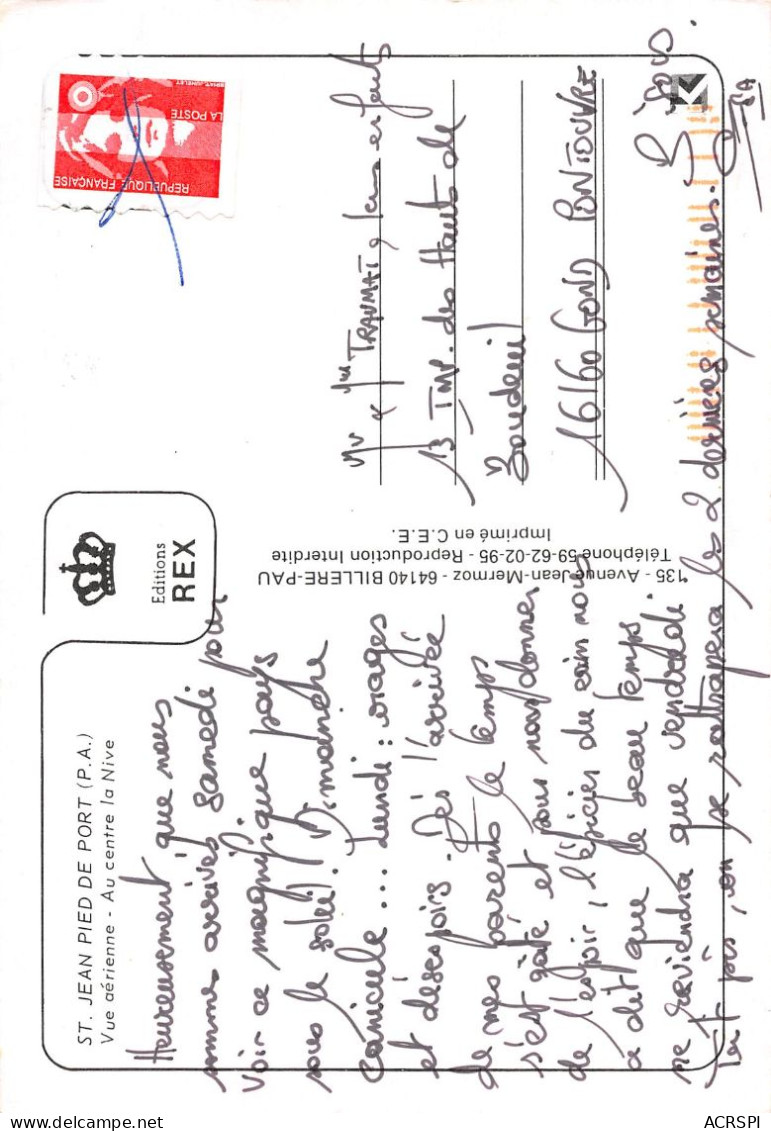 ST. JEAN PIED DE PORT (P.A.)
Vue aérienne - Au centre la Nive
Heureusement que nous
sommes arrivés samedi pour
voir ce magnifique pays
sous le soleil! Dimanche
canicule... Lundi: orages
et désespoirs. Dès l'arrivée
de mes parents le temps
s'est gâté et pour nous donner
de l'espoir, l'épicier du coin nous
a dit que le beau temps
ne reviendra que vendredi
Tant pis, on se rattrapera les 2 dernières semaines.
Bisous.
Editions
REX
135 - Avenue Jean-Mermoz - 64140 BILLERE-PAU
Téléphone 59-62-02-95 - Reproduction Interdite
Imprimé en C.E.E.
LA POSTE
REPUBLIQUE FRANÇAISE
Mr & Mme & leurs enfants
13 IMP. des Hauts de
16160 GOND PONTOUVRE
ACRSPI